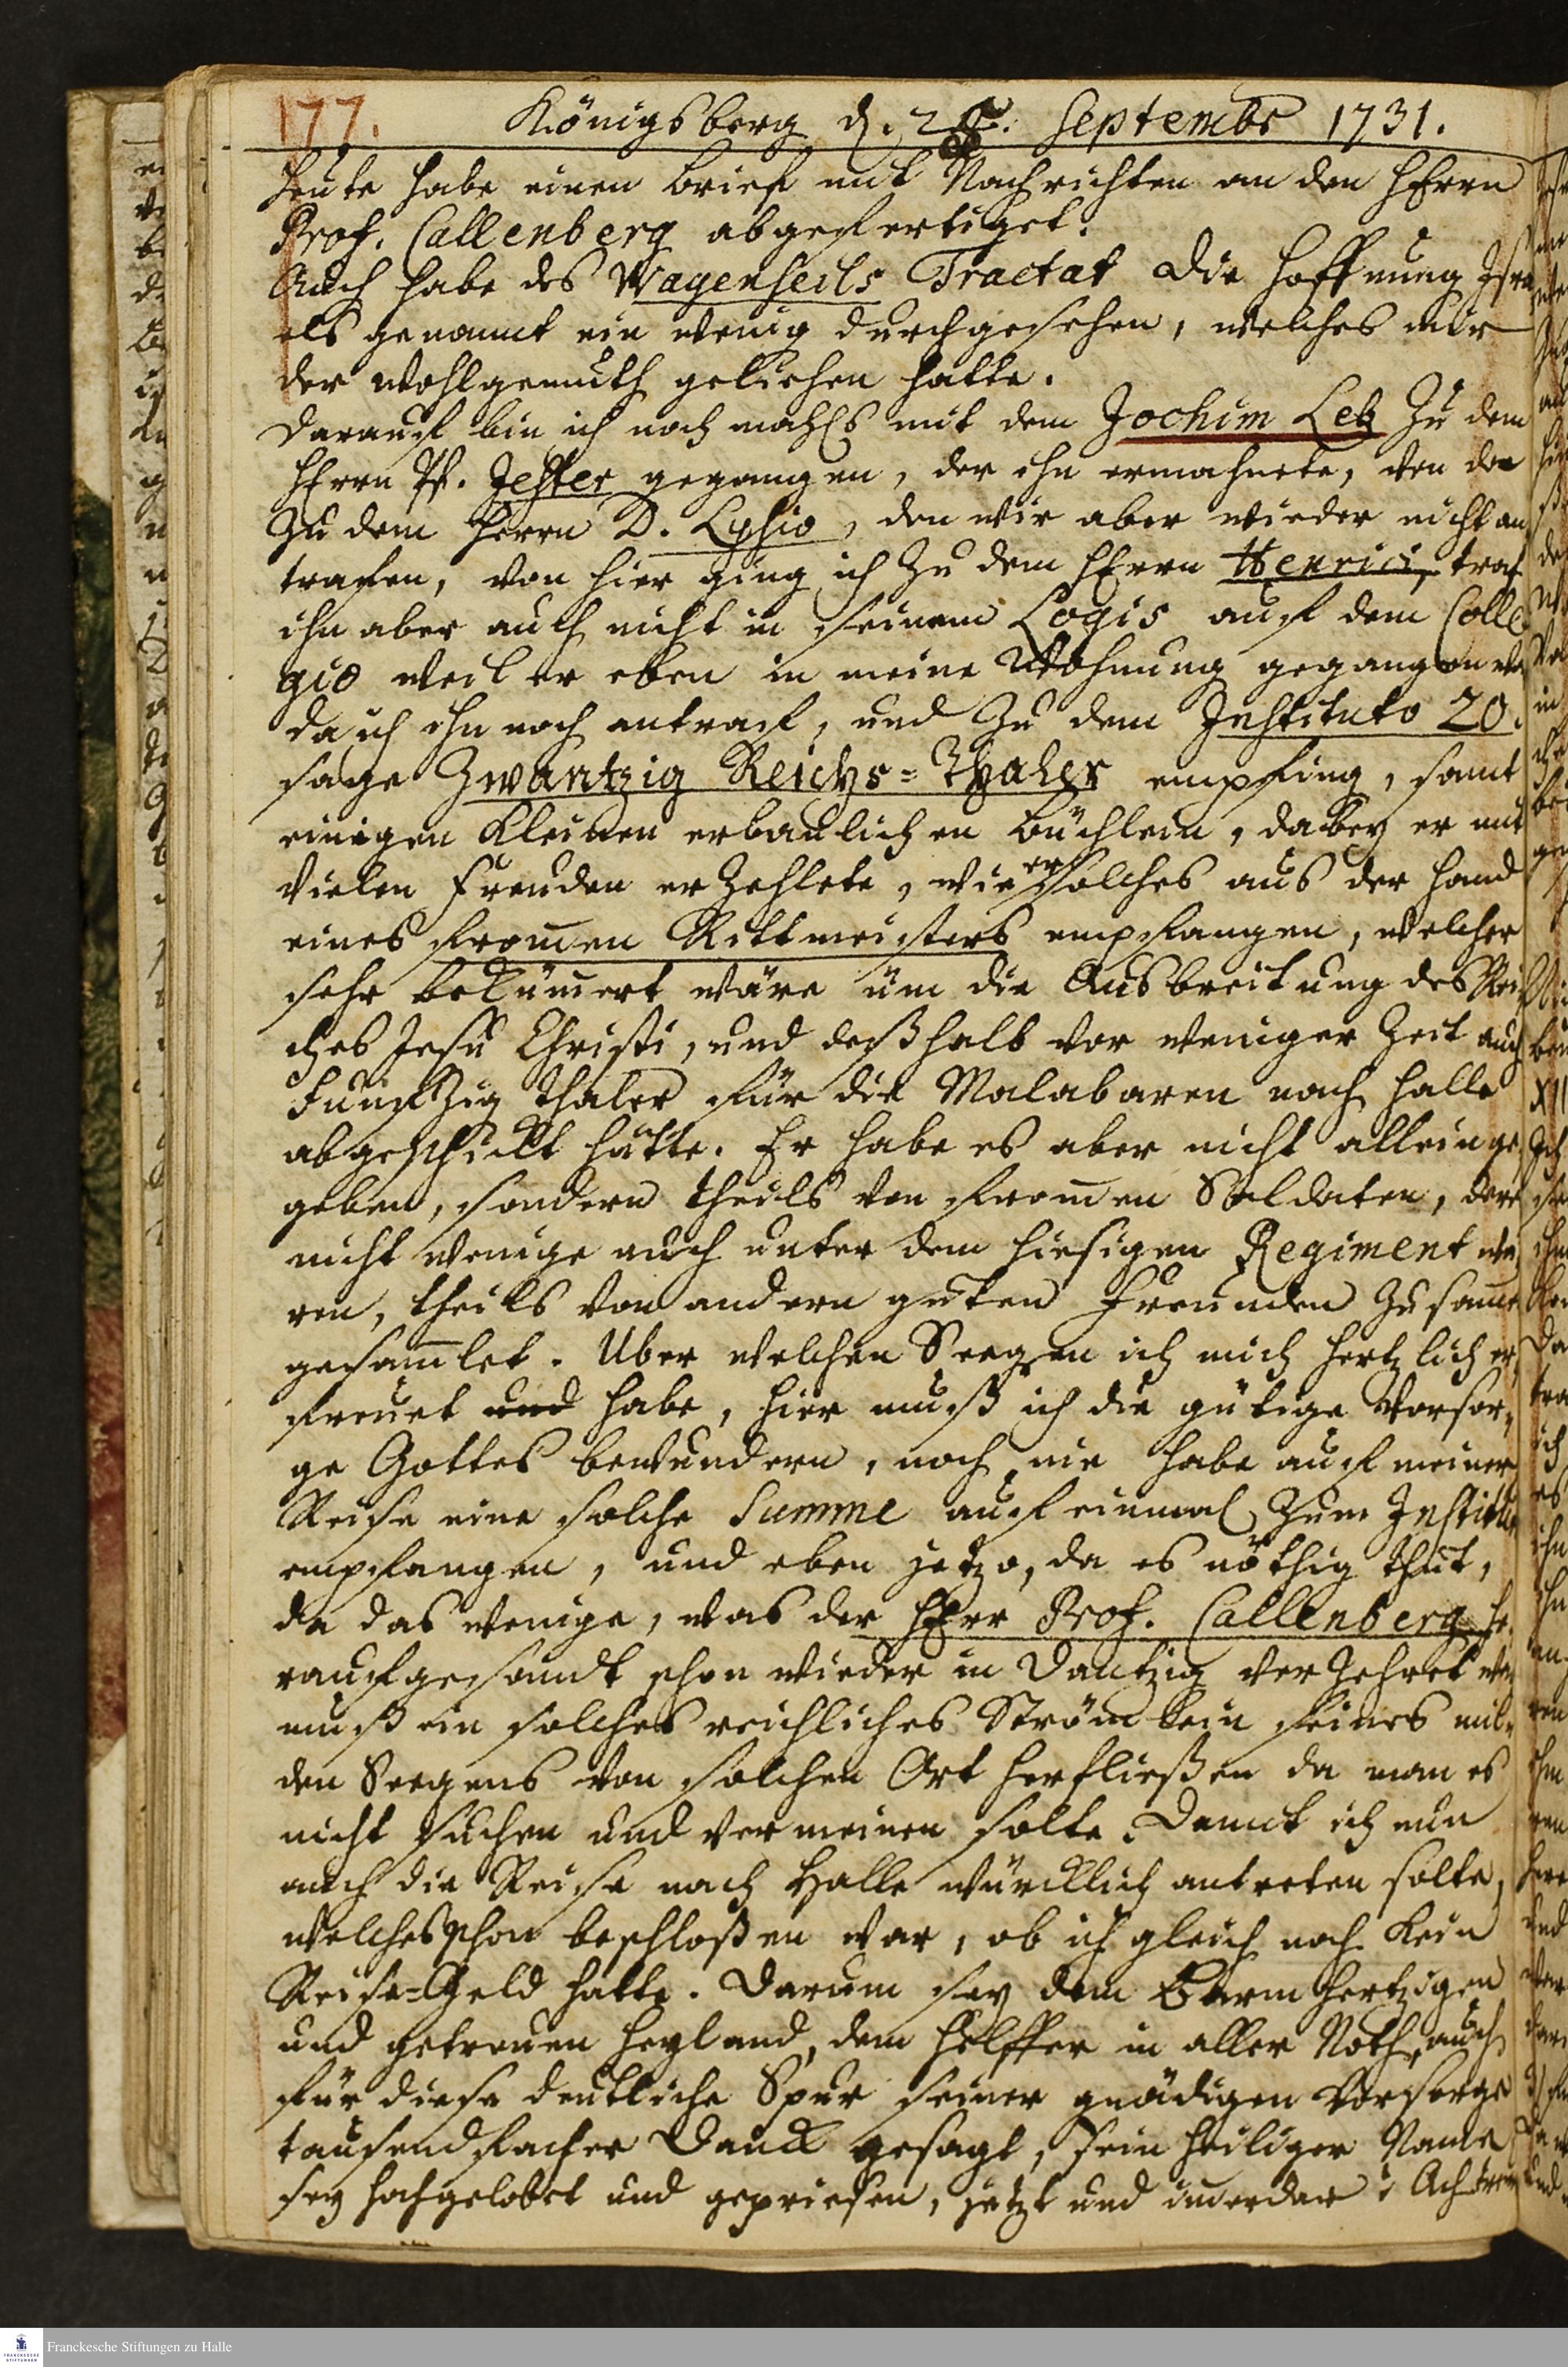 177. Königsberg d. 28. Septembr 1731.
Heute habe einen brief mit Nachrichten an den HErrn
Prof. Callenberg abgefertiget.
Auch habe des Wagenseils Tractat die Hoffnung Isra
els genannt ein wenig durchgesehen, welches mir
der Wohlgemuth geliehen hatte.
Darauf bin ich noch mahls mit dem Jochim Leb zu dem
HErrn Pf. Jester gegangen, der ihn ermahnete, von da
zu dem Herrn D. Lysio, den wir aber wieder nicht an
trafen, von hier ging ich zu dem HErrn Henrici, traf
ihn aber auch nicht in seinem Logis auf dem Colle
gio weil er eben in meine Wohnung gegangen wa
da ich ihn noch antraf, und zu dem Instituto 20.
sage Zwantzig Reichs=Thaler empfing, samt
einigen kleinen erbaulichen büchlein, dabey er mit
vielen Freuden erzehlete, wie er solches aus der Hand
eines from̄en Rittmeisters empfangen, welcher
sehr beküm̄ert wäre üm die Ausbreitung des Rei
ches Jesu Christi, und deßhalb vor weniger Zeit auch
Funfzig thaler für die Malabaren nach Halle
abgeschickt hätte. Er habe es aber nicht allein ge
geben, sondern theils von from̄en Soldaten, dere
nicht wenige auch unter dem hiesigen Regiment wä
ren, theils von andern guten Freunden zusam̄e
gesam̄let. Uber welchen Seegen ich mich hertzlich er,
freuet und habe, hier muß ich die gütige Vorsor,
ge Gottes bewundern, noch nie habe auf meiner
Reise eine solche Summe auf einmal zum Institut
empfangen, und eben jetzo, da es nöthig thut,
da das wenige, was der HErr Prof. Callenberg he
raufgesandt schon wieder in Dantzig verzehret wa
muß ein solches reichliches Strömlein seines mil,
den Seegens von solchen Ort herfließen da man es
nicht suchen und vermeinen solte. Damit ich nun
auch die Reise nach Halle würcklich antreten solte,
welches schon beschloßen war, ob ich gleich noch kein
Reise=Geld hatte. Darum sey dem Barmhertzigen
und getreuen Heyland, dem Helffer in aller Noth, auch
für diese deutliche Spur seiner gnädigen Vorsorge
tausendfacher Danck gesagt, sein heiliger Name
sey hochgelobet und gepriesen, jetzt und im̄erdar! Ach
Franckesche Stiftungen zu Halle